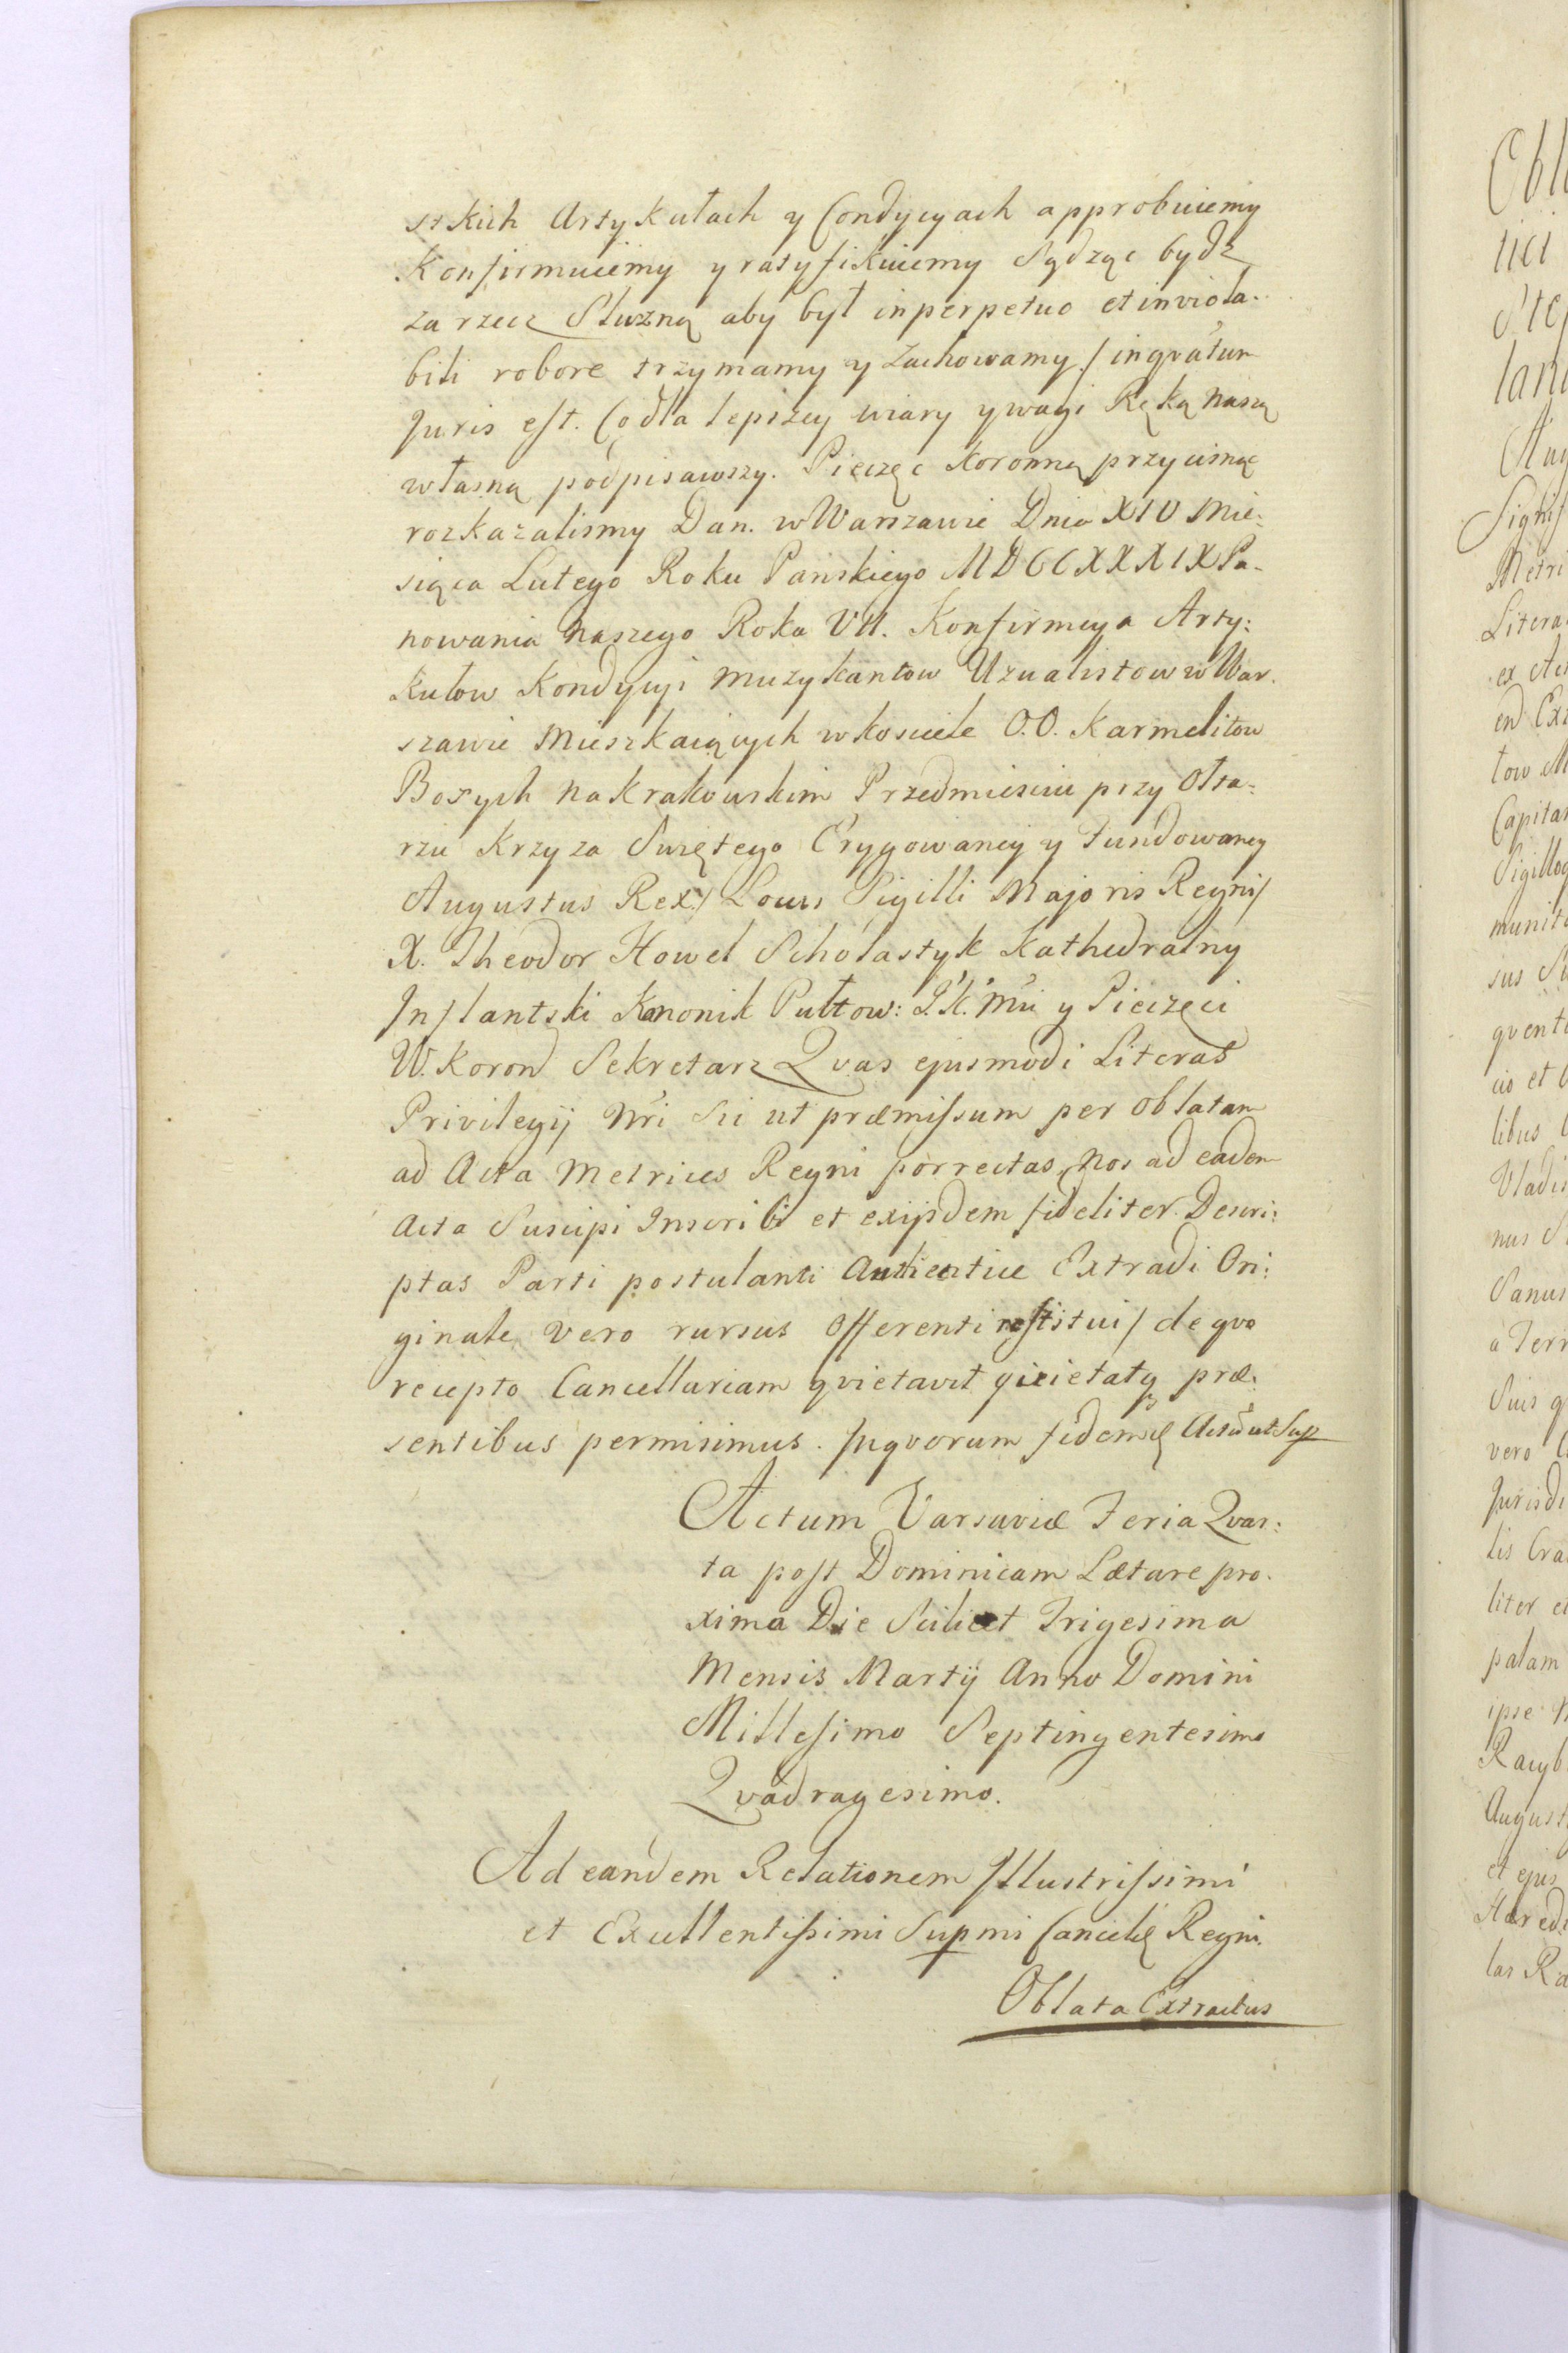 stkich Artykułach y Condycyach approbuiemy
Konfirmuiemy y ratyfikuiemy Sądząc bydź
za rzecz Słuzną aby był in perpetuo et inviola-
bili robore trzymamy y zachowamy / in qvatum
Juris est. Co dla lepszey wiary y wagi Ręką naszą
własną podpisawszy. Pieczęc Koronną przycisnąc
rozkazalismy Dan. w Warszawie Dnia XIV Mie:
siąca Lutego Roku Panskiego MDCCXXXIX Pa-
nowania naszego Roku VII. Konfirmcya Arty:
kułow Kondycyi muzykantow Uzualistow w War.
szawie Mieszkaiących w kosciele O.O. Karmelitow
Bosych na Krakowskim Przedmiesciu przy Ołta:
rzu Krzyza Swiętego Erygowaney y Fundowaney
Augustus Rex / Locus Sigilli Majoris Regni /
X. Theodor Howel Scholastyk Kathedralny
Inflantski Kanonik Pułtow: J.K.Mci y Pieczęci
W. Koron Sekretarz Qvas ejusmodi Literas
Privilegij Nri Sui ut præmissum per oblatam
ad Acta Metrices Regni porrectas, Nos ad eadem
Acta Suscipi Inscribi et exijsdem fideliter Descri:
ptas Parti postulanti Authentice Extradi Ori:
ginale vero rursus Offerenti restitui / de qvo
recepto Cancellariam qvietavit qvietatq præ:
sentibus permisimus. In qvorum fidem &c Actu ut Sup
Actum Varsaviæ Feria Qvar:
ta post Dominicam Lætare pro.
xima Die Scilicet Trigesima
Mensis Martij Anno Domini
Millesimo Septingentesimo
Qvadragesimo.
Ad eandem Relationem Illustrissimi
et Excellentissimi Supmi Cancell Regni.
Oblata Extractus